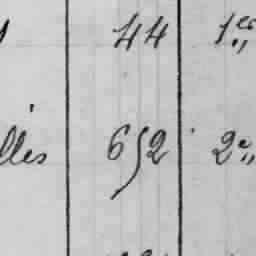 44 1er
lles 652 2e